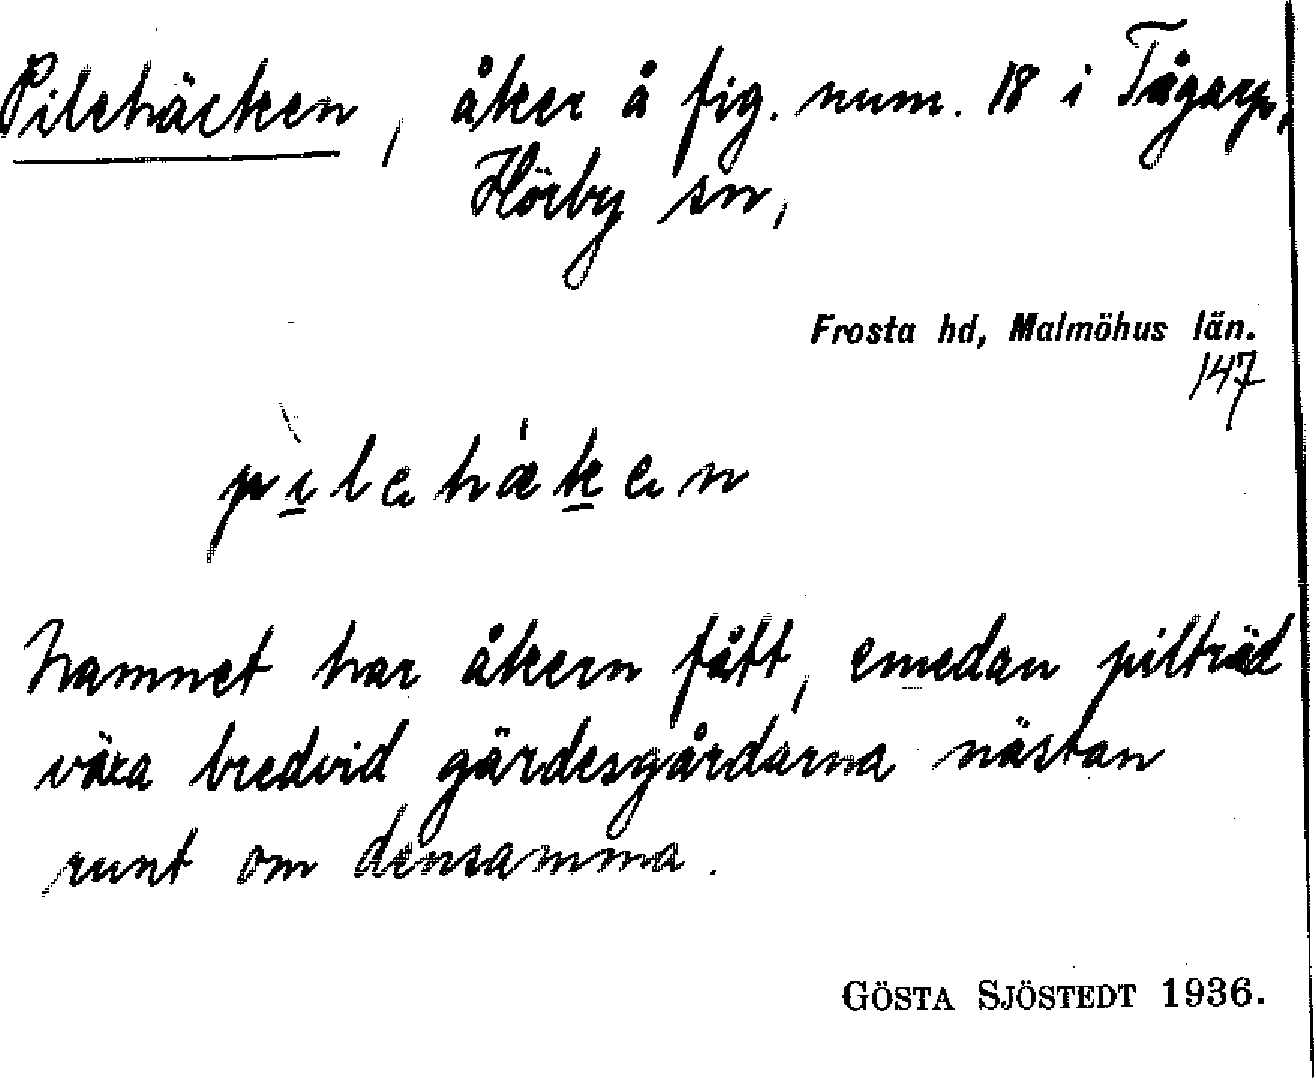 Pilehäcken, åker å fig. num. 18 i Tågarp,
Hörby sn,
Frosta hd, Malmöhus län.
147
pìlehǽken
Namnet har åkern fått, emedan pilträd
växa bredvid gärdesgårdarna nästan
runt om densamma.
GÖSTA SJÖSTEDT 1936.